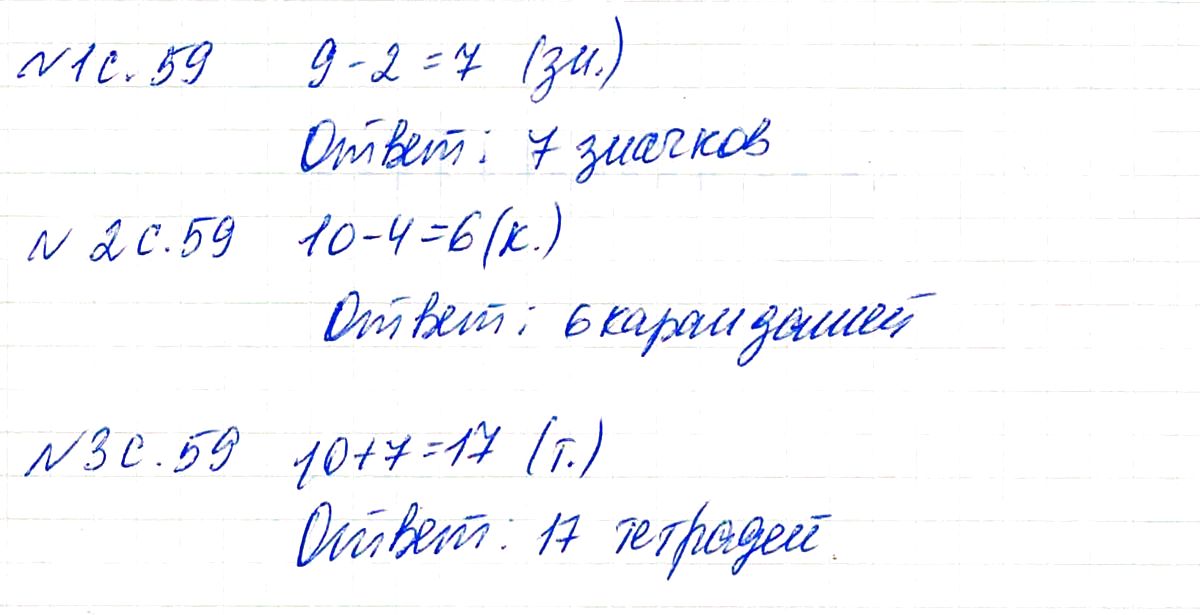 №1 с. 59 9-2=7 (зн.)
Ответ: 7 значков
№ 2 с. 59 10-4=6 (к.)
Ответ: 6 карандашей
№3 с. 59 10+7=17 (т.)
Ответ: 17 тетрадей